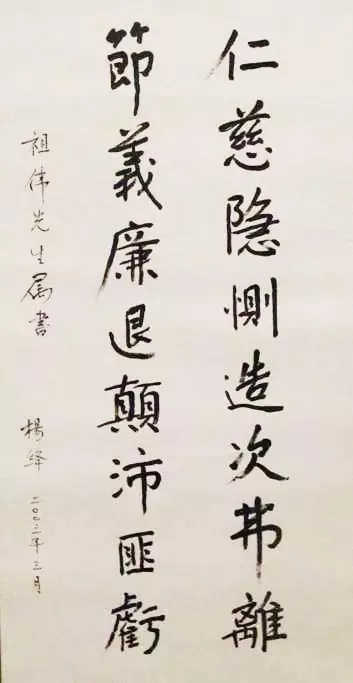 仁慈隐惻造次弗離
節義廉退顛沛匪虧
祖偉先生属書
楊絳 二〇〇二年三月